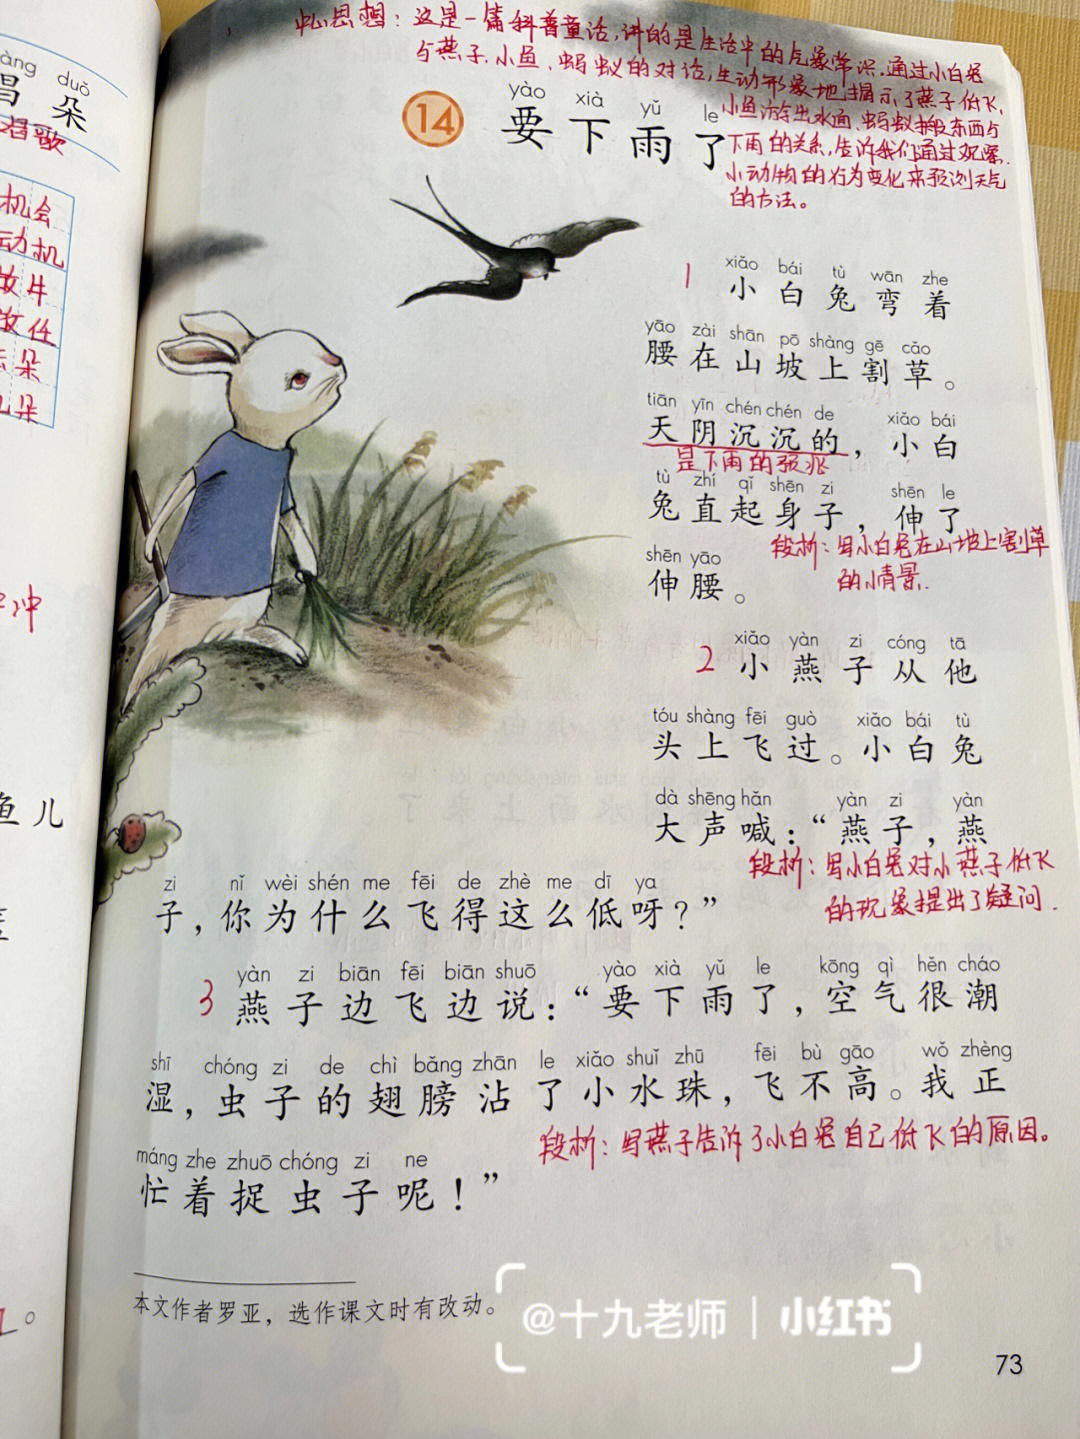 àng duǒ
唱 朵
唱歌
机会
动机
放牛
放任
云朵
几朵
鱼儿
中心思想：这是一篇科普童话，讲的是生活中的气象常识。通过小白兔
与燕子、小鱼、蚂蚁的对话，生动形象地揭示了燕子低飞、
小鱼游出水面、蚂蚁搬东西与
下雨的关系，告诉我们通过观察
小动物的行为变化来预测天气
的方法。
yào xià yǔ le
14 要下雨了
1
xiǎo bái tù wān zhe
小白兔弯着
yāo zài shān pō shàng gē cǎo
腰在山坡上割草。
tiān yīn chén chén de xiǎo bái
天阴沉沉的，小白
是下雨的预兆
tù zhí qǐ shēn zi shēn le
兔直起身子，伸了
段析：写小白兔在山坡上割草
的情景.
shēn yāo
伸腰。
2
xiǎo yàn zi cóng tā
小燕子从他
tóu shàng fēi guò xiǎo bái tù
头上飞过。小白兔
dà shēng hǎn yàn zi yàn
大声喊：“燕子，燕
段析：写小白兔对小燕子低飞
的现象提出了疑问.
zi nǐ wèi shén me fēi de zhè me dī ya
子，你为什么飞得这么低呀？”
3
yàn zi biān fēi biān shuō yào xià yǔ le kōng qì hěn cháo
燕子边飞边说：“要下雨了，空气很潮
shī chóng zi de chì bǎng zhān le xiǎo shuǐ zhū fēi bù gāo wǒ zhèng
湿，虫子的翅膀沾了小水珠，飞不高。我正
段析：写燕子告诉了小白兔自己低飞的原因。
máng zhe zhuō chóng zi ne
忙着捉虫子呢！”
本文作者罗亚，选作课文时有改动。
@十九老师 | 小红书
73